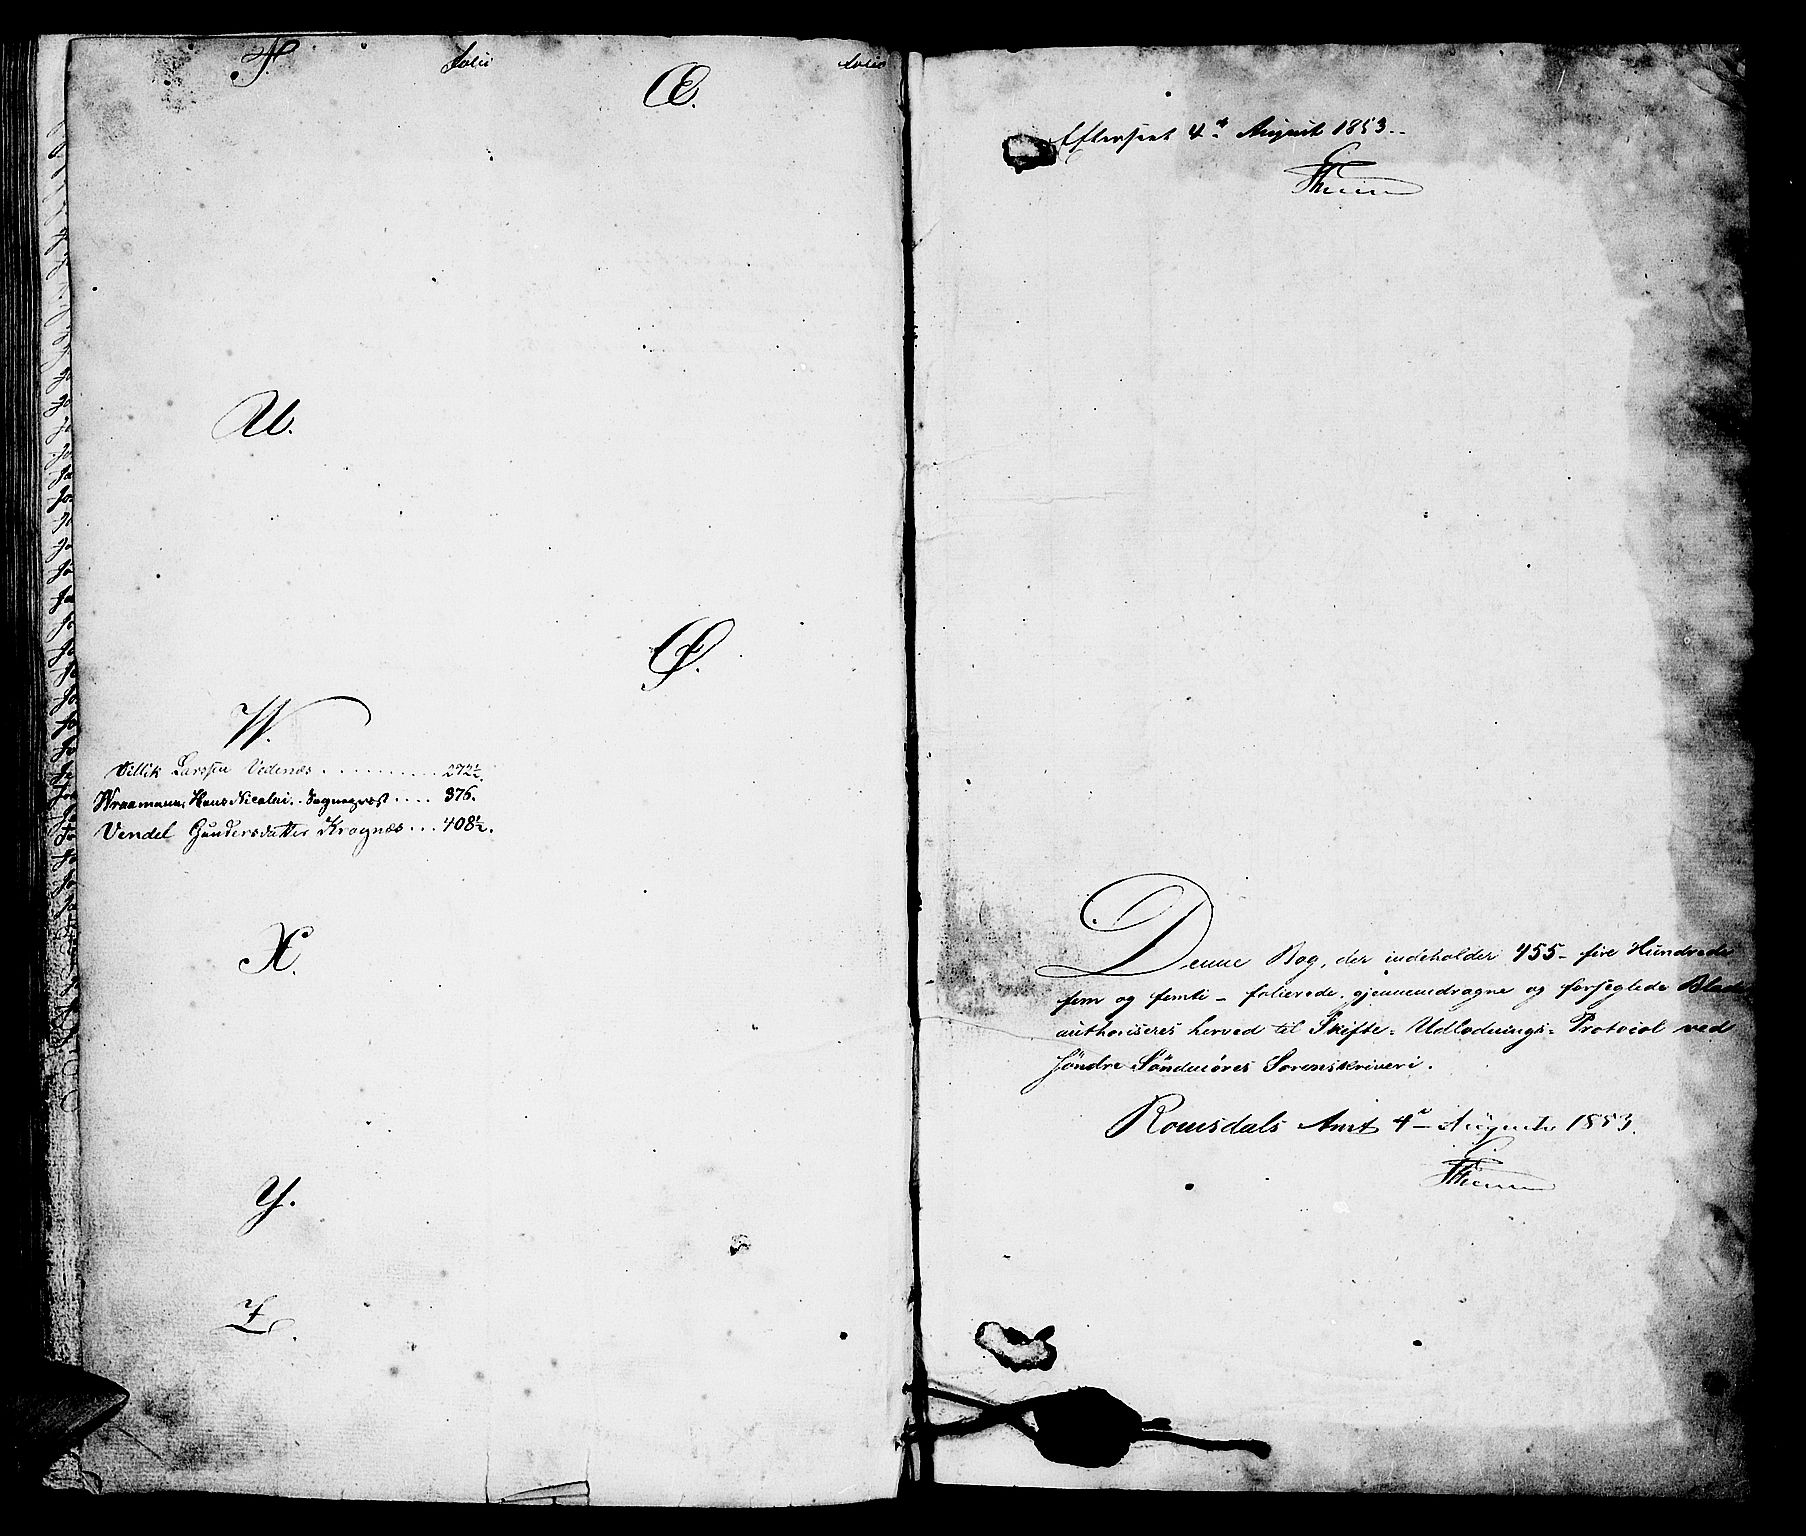 T.
folio
folio
Æ.
U.
Ø.
W.
Villik Larssen Vedenæs .......... 272½.
Wraamann, Hans Nicolai. Sogneprest .... 376.
Vendel Gundersdatter Kragnæs ... 408½.
X.
Y.
Z.
Efterseet 4de August 1853.
Denne Bog, der indeholder 455 - fire Hundrede
fem og femti - folierede, gjennemdragne og forseglede Blade
authoriseres herved til Skifte-Udlodnings-Protocol ved
Söndre Söndmöres Sorenskriveri.
Romsdals Amt 4de August 1853.